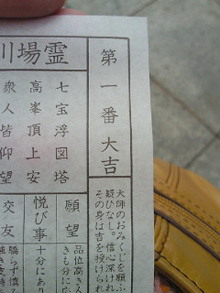 川場霊
第一番 大吉
七宝浮図塔
高峯頂上安
衆人皆仰望
大師のおみくじを願ふ
疑ひなし。信心深けれ
その身は吉を授けられ
願望
品位高き人
きも分に応
悦び事
十分にあり
交友
驕らず慎